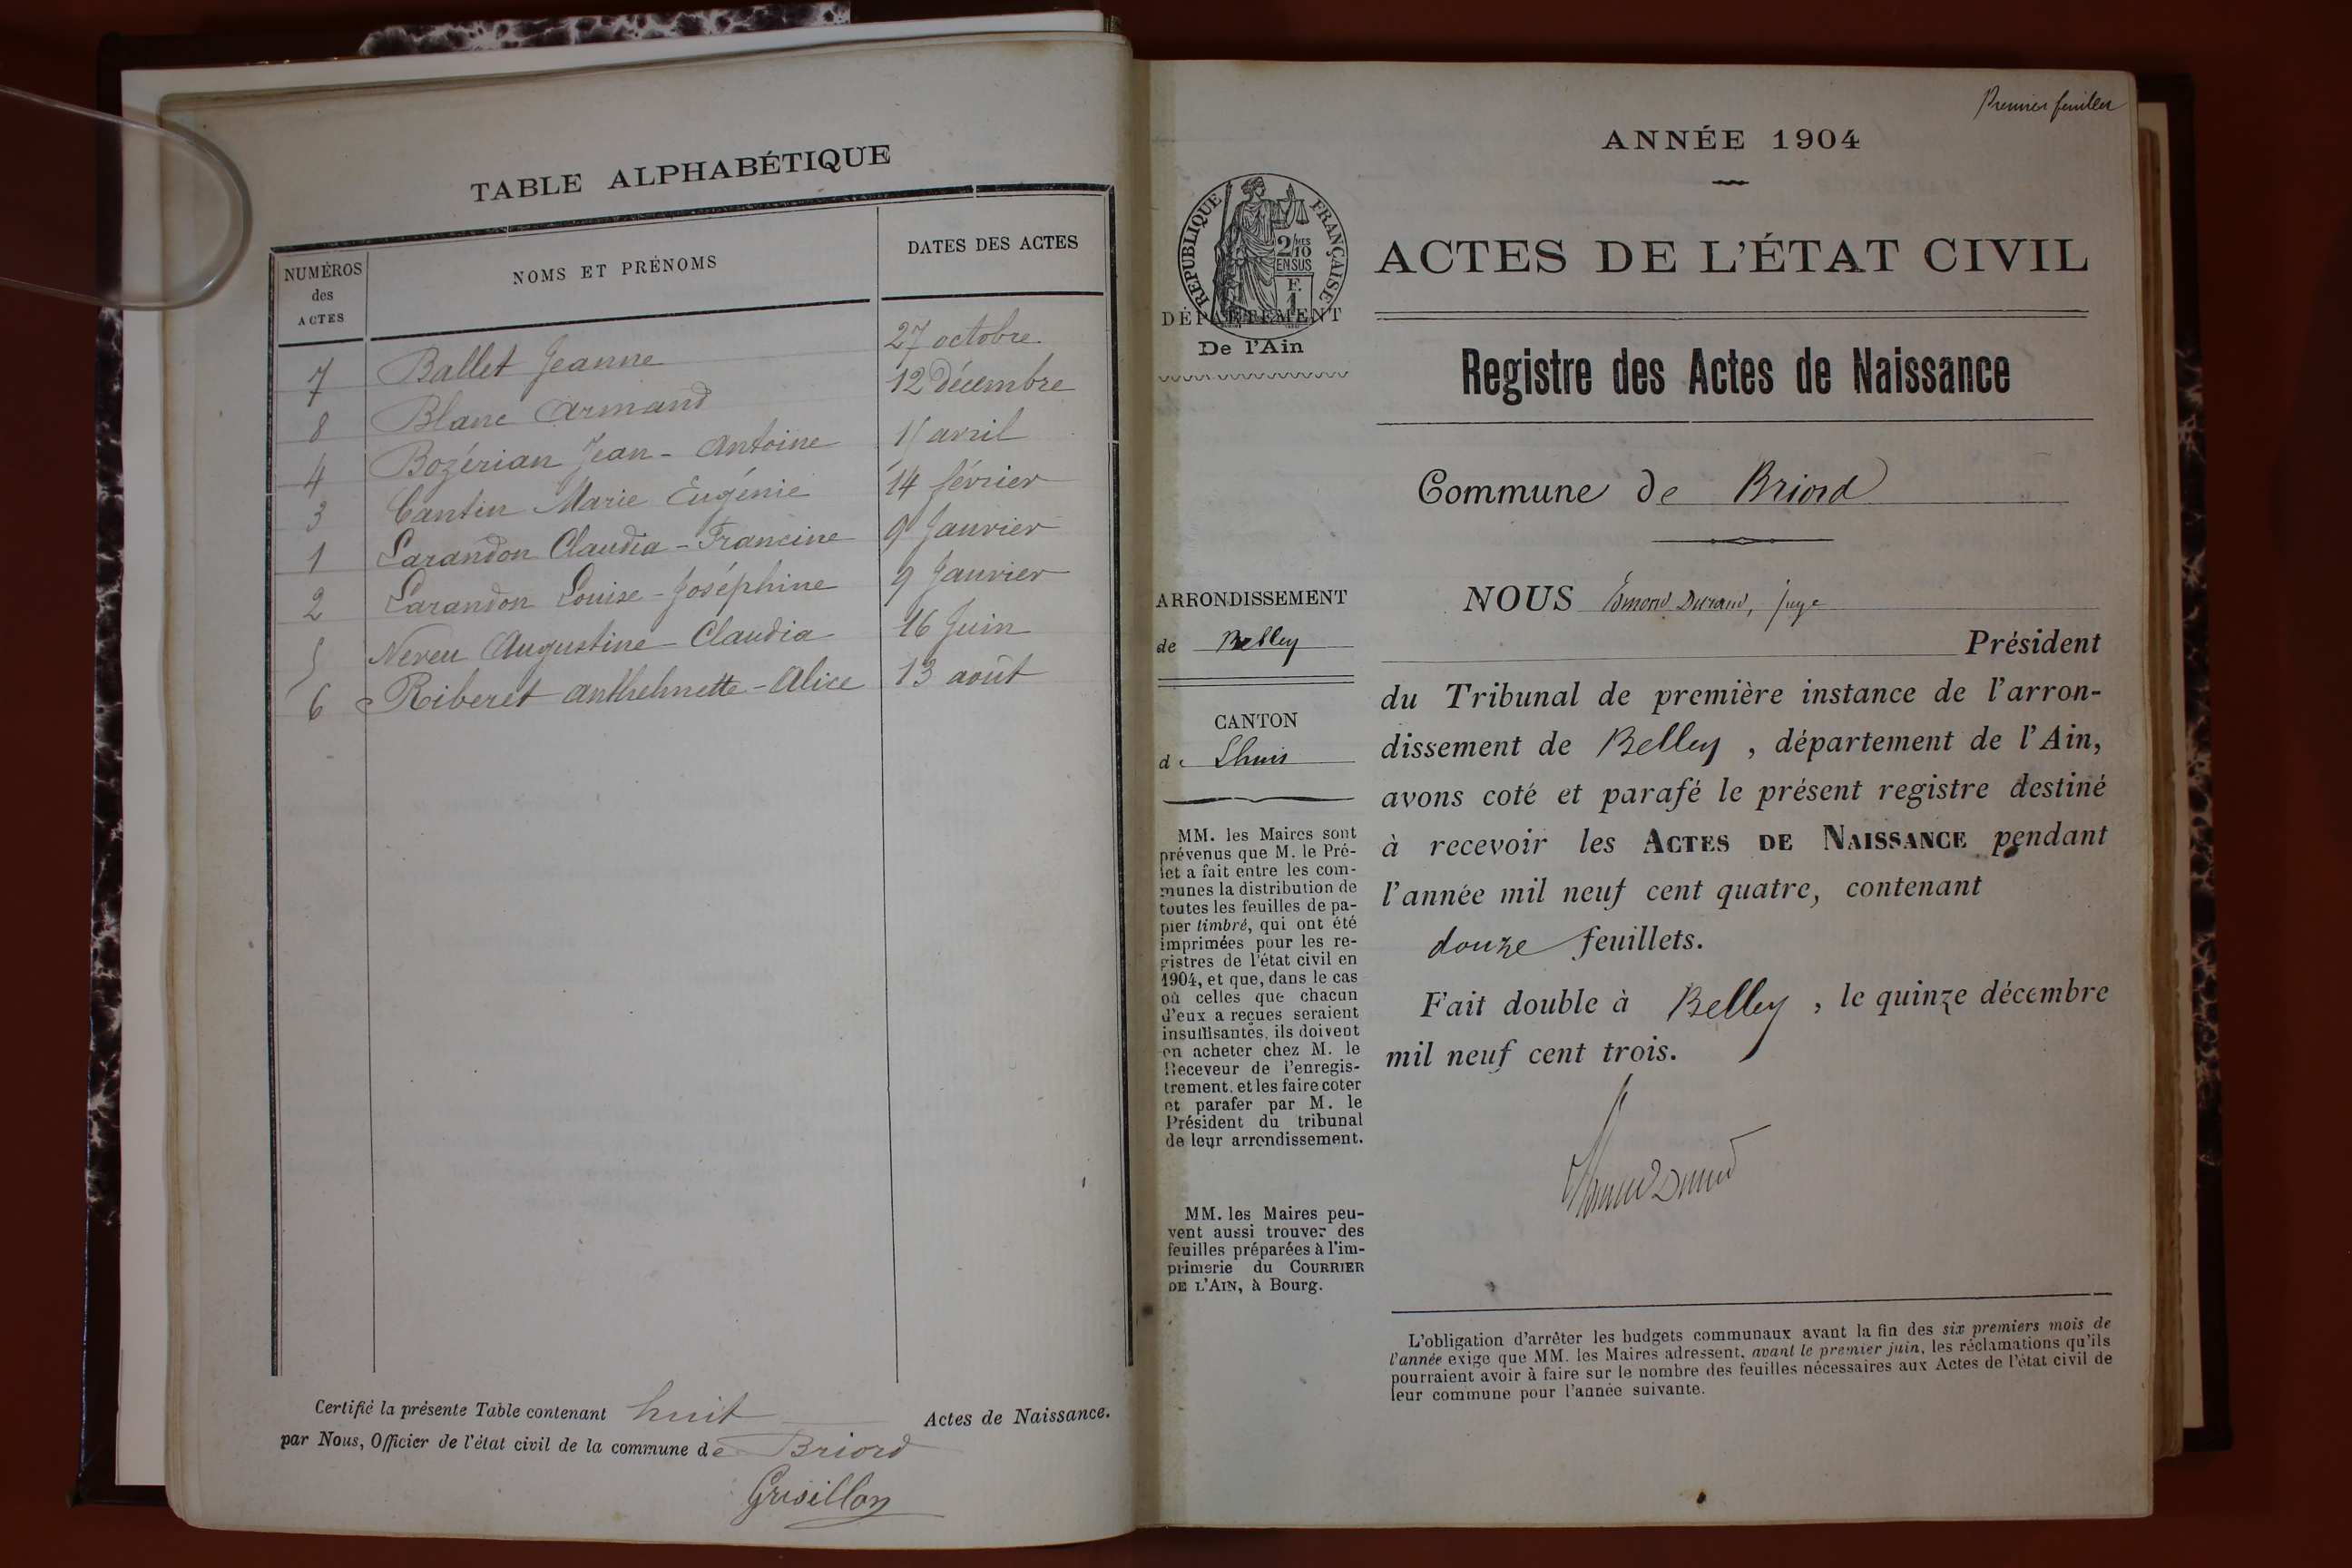 TABLE ALPHABÉTIQUE
NUMÉROS des ACTES
NOMS ET PRÉNOMS
DATES DES ACTES
7 Ballet Jeanne 27 octobre
8 Blanc Armand 12 Décembre
4 Bozérian Jean - Antoine 15 avril
3 Cantin Marie Eugénie 14 février
1 Larandon Claudia - Francine 9 Janvier
2 Larandon Louise - Joséphine 9 Janvier
5 Neveu Augustine - Claudia 16 Juin
6 Riberet Anthelmette - Alice 13 août
Certifié la présente Table contenant huit Actes de Naissance.
par Nous, Officier de l'état civil de la commune de Briord
Grisillon
Premier feuillet
ANNÉE 1904
RÉPUBLIQUE FRANÇAISE
2/10 MES
EN SUS
F.
1
DÉPARTEMENT
De l'Ain
ACTES DE L'ÉTAT CIVIL
Registre des Actes de Naissance
Commune de Briord
ARRONDISSEMENT
de Belley
CANTON
de Lhuis
MM. les Maires sont
prévenus que M. le Pré-
fet a fait entre les com-
munes la distribution de
toutes les feuilles de pa-
pier timbré, qui ont été
imprimées pour les re-
gistres de l'état civil en
1904, et que, dans le cas
où celles que chacun
d'eux a reçues seraient
insuffisantes, ils doivent
en acheter chez M. le
Receveur de l'enregis-
trement, et les faire coter
et parafer par M. le
Président du tribunal
de leur arrondissement.
MM. les Maires peu-
vent aussi trouver des
feuilles préparées à l'im-
primerie du COURRIER
DE L'AIN, à Bourg.
NOUS Edmond Durand, juge
Président
du Tribunal de première instance de l'arron-
dissement de Belley, département de l'Ain,
avons coté et parafé le présent registre destiné
à recevoir les ACTES DE NAISSANCE pendant
l'année mil neuf cent quatre, contenant
douze feuillets.
Fait double à Belley, le quinze décembre
mil neuf cent trois.
L'obligation d'arrêter les budgets communaux avant la fin des six premiers mois de
l'année exige que MM. les Maires adressent, avant le premier juin, les réclamations qu'ils
pourraient avoir à faire sur le nombre des feuilles nécessaires aux Actes de l'état civil de
leur commune pour l'année suivante.